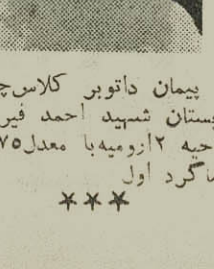 پیمان داتوبر کلاس‌چ
بستان شهید احمد فیر
حیه ۲ارومیه‌با معدل۷۵
اگرد اول
***